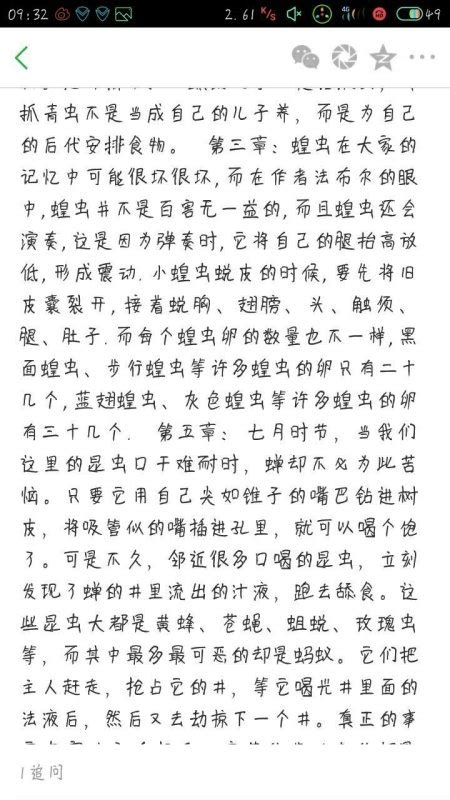 09:32 2.61 K/s 4G 49
抓青虫不是当成自己的儿子养，而是为自己
的后代安排食物。 第三章：蝗虫在大家的
记忆中可能很坏很坏,而在作者法布尔的眼
中,蝗虫并不是百害无一益的,而且蝗虫还会
演奏,这是因为弹奏时,它将自己的腿抬高放
低,形成震动.小蝗虫蜕皮的时候,要先将旧
皮囊裂开,接着蜕胸、翅膀、头、触须、
腿、肚子.而每个蝗虫卵的数量也不一样,黑
面蝗虫、步行蝗虫等许多蝗虫的卵只有二十
几个,蓝翅蝗虫、灰色蝗虫等许多蝗虫的卵
有三十几个. 第五章：七月时节，当我们
这里的昆虫口干难耐时，蝉却不必为此苦
恼。只要它用自己尖如锥子的嘴巴钻进树
皮，将吸管似的嘴插进孔里，就可以喝个饱
了。可是不久，邻近很多口喝的昆虫，立刻
发现了蝉的井里流出的汁液，跑去舔食。这
些昆虫大都是黄蜂、苍蝇、蛆蜕、玫瑰虫
等，而其中最多最可恶的却是蚂蚁。它们把
主人赶走，抢占它的井，等它喝光井里面的
法液后，然后又去劫掠下一个井。真正的事
1追问